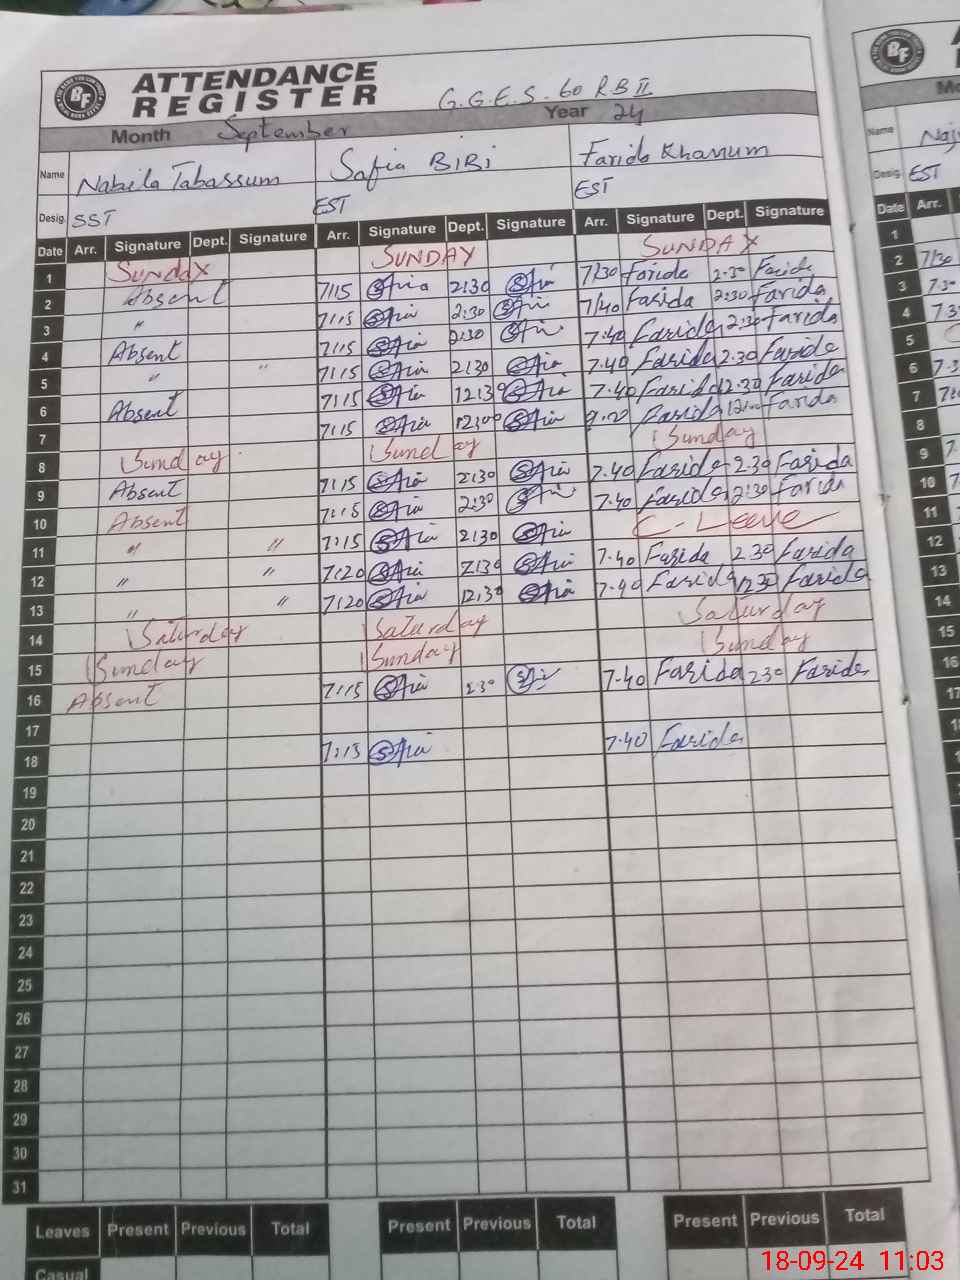 ATTENDANCE
REGISTER
G.G.E.S. 60 RB II
Month September Year 24
Name Nabila Tabassum Safia BiBi Farida Khanum
Desig. SST EST EST
Date Arr. Signature Dept. Signature Arr. Signature Dept. Signature Arr. Signature Dept. Signature
1 Sunday SUNDAY SUNDAY
2 Absent 7/15 Safia 2:30 Safia 7/30 Farida 2.30 Farida
3 " 7:15 Safia 2:30 Safia 7/40 Farida 2:30 Farida
4 Absent 7:15 Safia 2:30 Safia 7.40 Farida 2:30 Farida
5 " " 7:15 Safia 2:30 Safia 7.40 Farida 2.30 Farida
6 Absent 7:15 Safia 12:30 Safia 7.40 Farida 12.30 Farida
7 7:15 Safia 12:00 Safia 9.20 Farida 12:00 Farida
8 Sunday Sunday Sunday
9 Absent 7:15 Safia 2:30 Safia 7.40 Farida 2.30 Farida
10 Absent 7:15 Safia 2:30 Safia 7.40 Farida 2:30 Farida
11 " " 7:15 Safia 2:30 Safia C-Leave
12 " " 7:20 Safia 2:30 Safia 7.40 Farida 2.30 Farida
13 " " 7:20 Safia 12:30 Safia 7.40 Farida 12.30 Farida
14 Saturday Saturday Saturday
15 Sunday Sunday Sunday
16 Absent 7:15 Safia 2:30 Safia 7.40 Farida 2.30 Farida
17
18 7:15 Safia 7.40 Farida
19
20
21
22
23
24
25
26
27
28
29
30
31
Leaves Present Previous Total Present Previous Total Present Previous Total
Casual
BF
Name
Desig. EST
Date Arr.
1
2 7/30
3 7.30
4
5
6
7
8
9
10
11
12
13
14
15
16
17
18-09-24 11:03